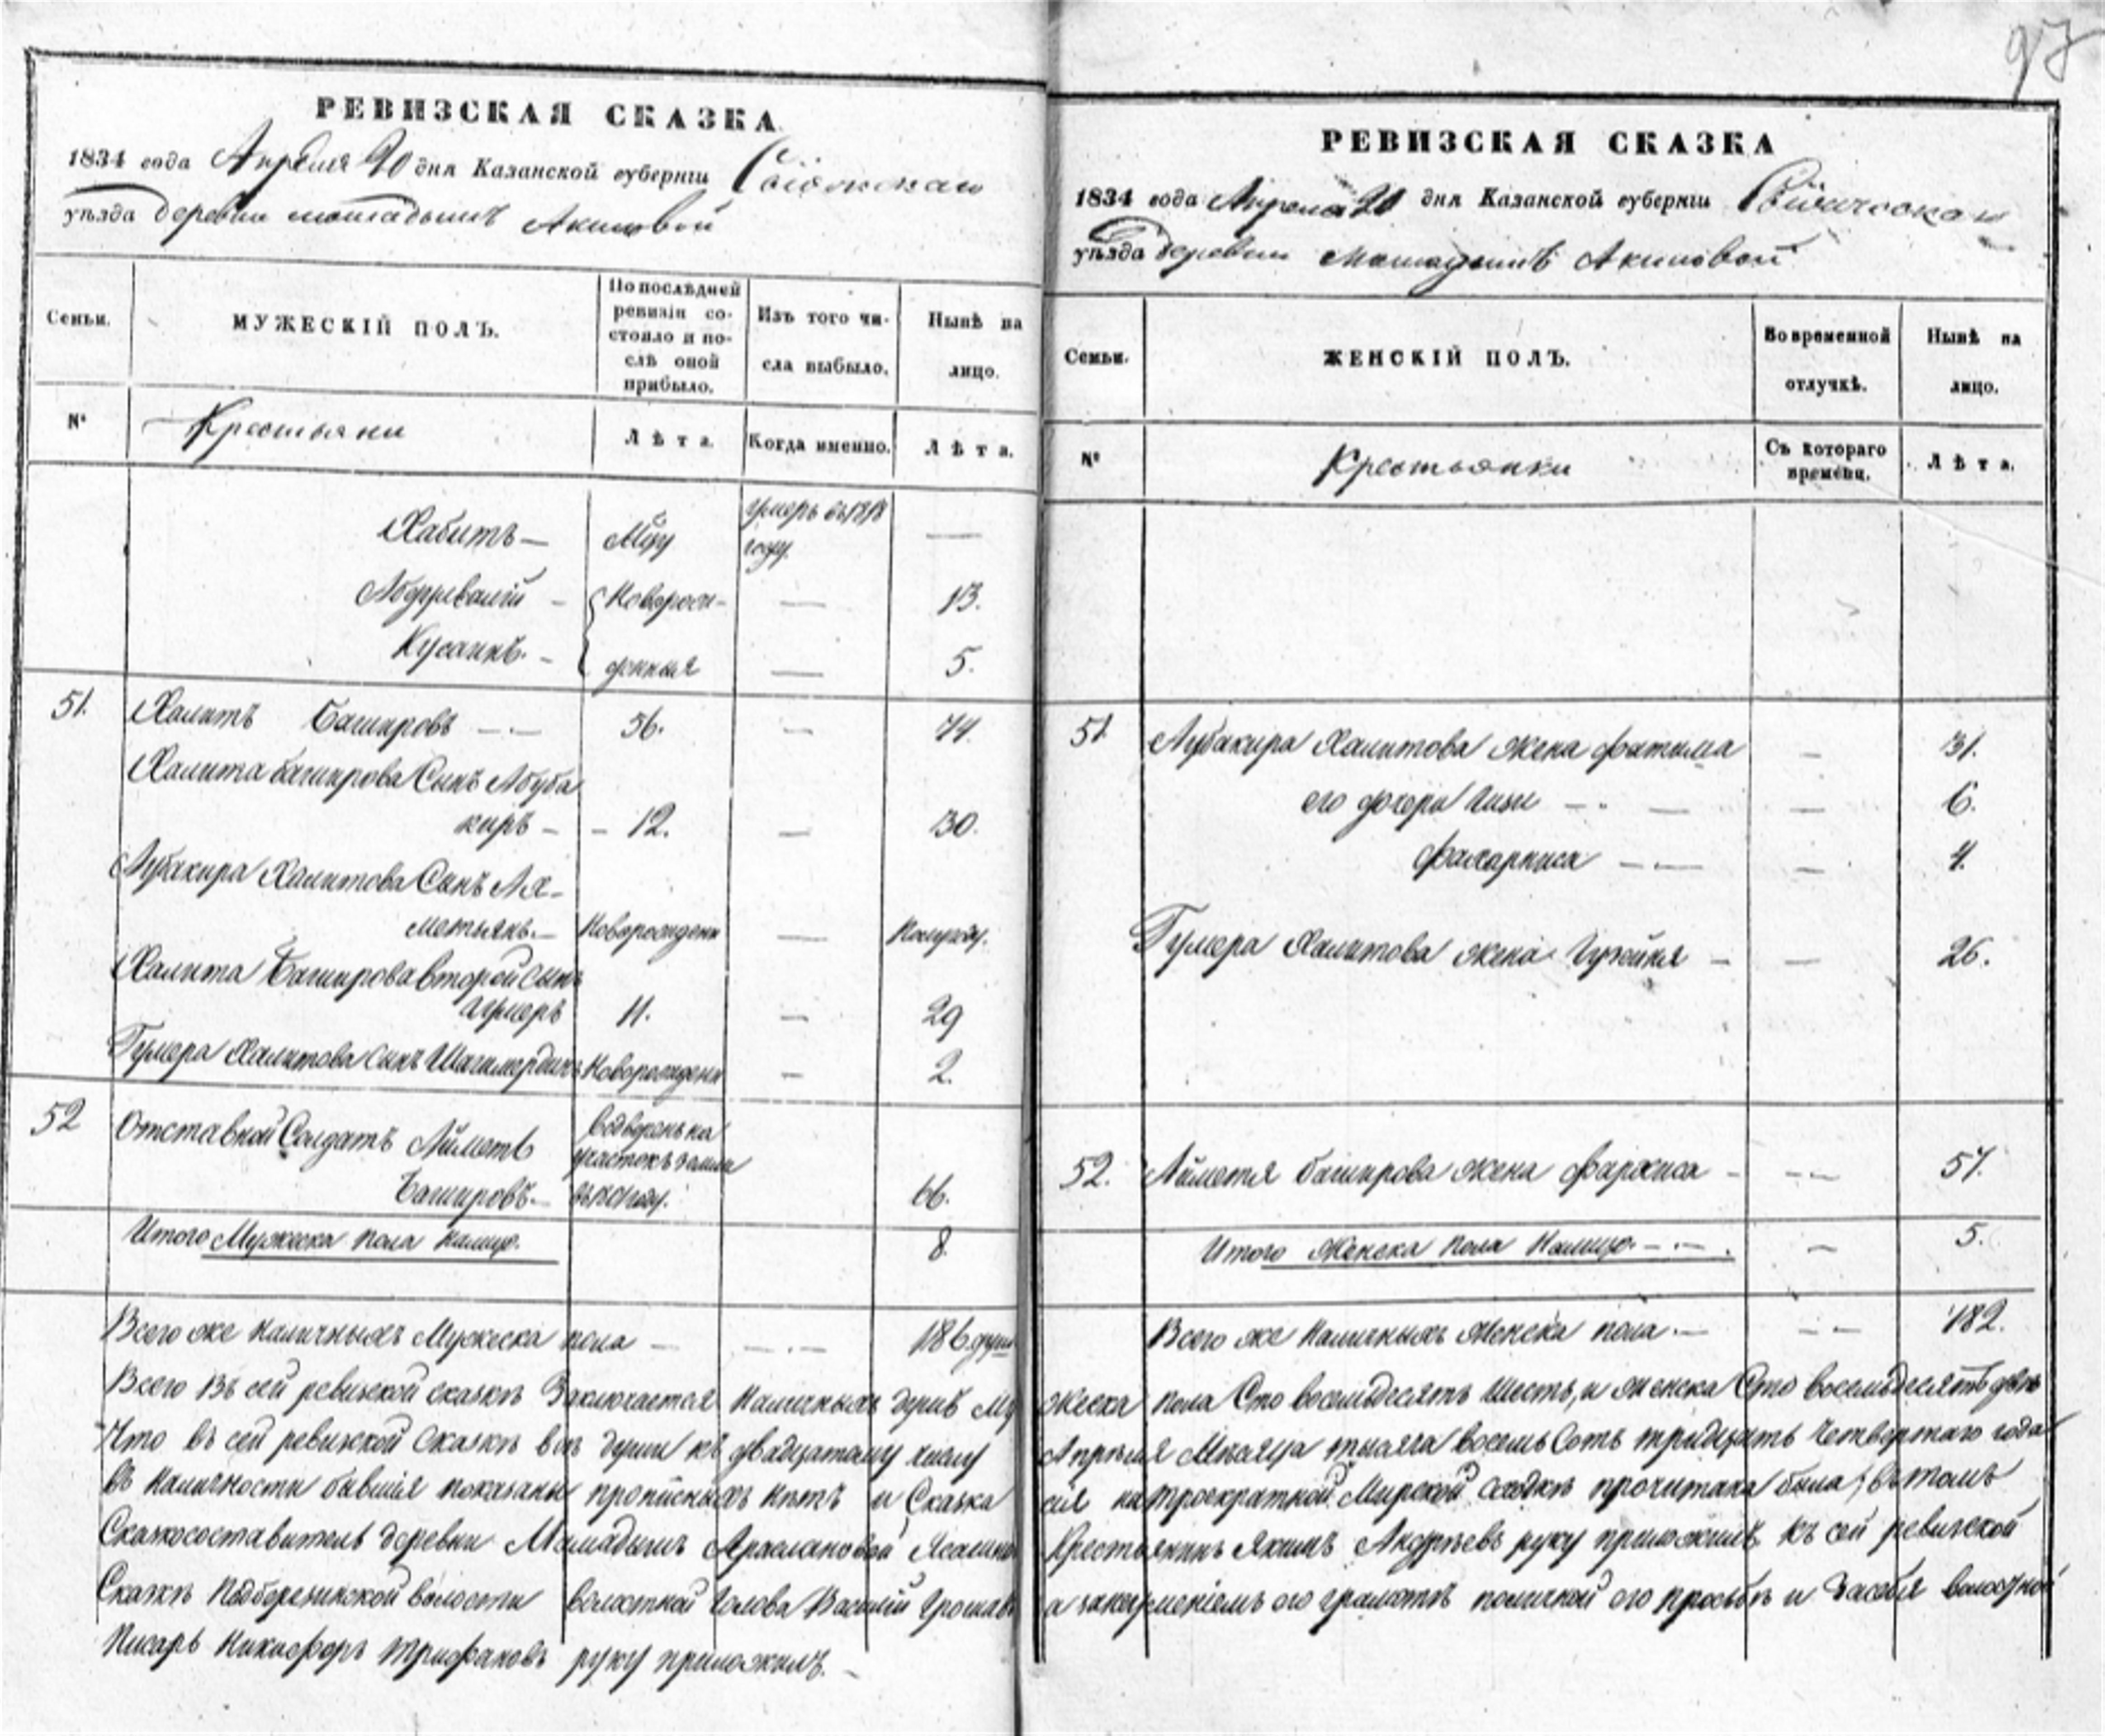 97
РЕВИЗСКАЯ СКАЗКА
1834 года Апреля 20 дня Казанской губерніи
уѣзда деревни мамадышъ Акиповой
Семьи. МУЖЕСКІЙ ПОЛЪ. По послѣдней ревизіи состояло и послѣ оной прибыло. Изъ того числа выбыло. Нынѣ на лицо.
№ Крестьяни Лѣта. Когда именно. Лѣта.
Хабитъ — умеръ въ 1818 году. —
Новорож- — 13.
Хусаинъ — денныя — 5.
51. Халитъ Башировъ — 56. — 74.
Халита баширова Сынъ Абуба
киръ — 12. — 30.
Аубакира Халитова Сынъ Ах-
метьянъ — Новорожденн —
Халита Баширова второй сынъ
11. — 29
Гумера Халитова сынъ Шагимарданъ Новорожденн — 2.
52 Отставной Солдатъ
Башировъ. — Водворенъ на участокъ земли 66.
Итого Мужеска пола налицо. 8
Всего же наличныхъ Мужеска пола — 186 душъ
РЕВИЗСКАЯ СКАЗКА
1834 года Апреля 20 дня Казанской губерніи
уѣзда деревни мамадышъ Акиповой
Семьи. ЖЕНСКІЙ ПОЛЪ. Во временной отлучкѣ. Нынѣ на лицо.
№ Крестьянки Съ котораго времени. Лѣта.
51 Аубакира Халитова жена фатима — 31.
его дочери — 6.
— 4.
Гумера Халитова жена — 26.
52. баширова жена — 57.
Итого Женска пола Налицо. — 5.
Всего же Наличныхъ Женска пола. — 182.
Всего въ сей ревизской сказкѣ Заключается Наличныхъ душъ Му жеска пола Сто восемьдесятъ шесть, и женска Сто восемьдесятъ двѣ
Что въ сей ревизской Сказкѣ всѣ души къ двадцатому числу Апрѣля Мѣсяца тысяча восемь Сотъ тридцать четвертаго года
въ Наличности бывшія показаны прописныхъ нѣтъ и Сказка сія на троекратной Мирской сходкѣ прочитана была; въ томъ
Сказкосоставитель деревни Мамадышъ Араслановой Крестьянинъ Якимъ Андрѣевъ руку приложилъ. Къ сей ревизской
Сказкѣ Подберезинской волости волостной Голова Василий а за неумѣніемъ его грамотѣ по личной его просьбѣ и за себя волостной
Писарь Никифоръ Трифановъ руку приложилъ. —